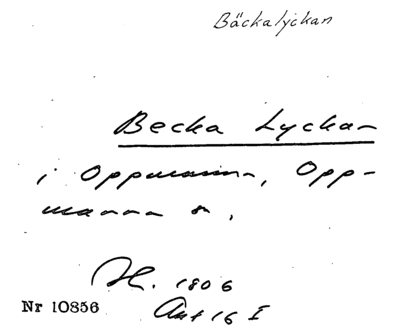 Bäckalyckan
Becka Lyckan
i Oppmanna, Opp-
manna sn,
H. 1806
Akt 16 I
Nr 10856